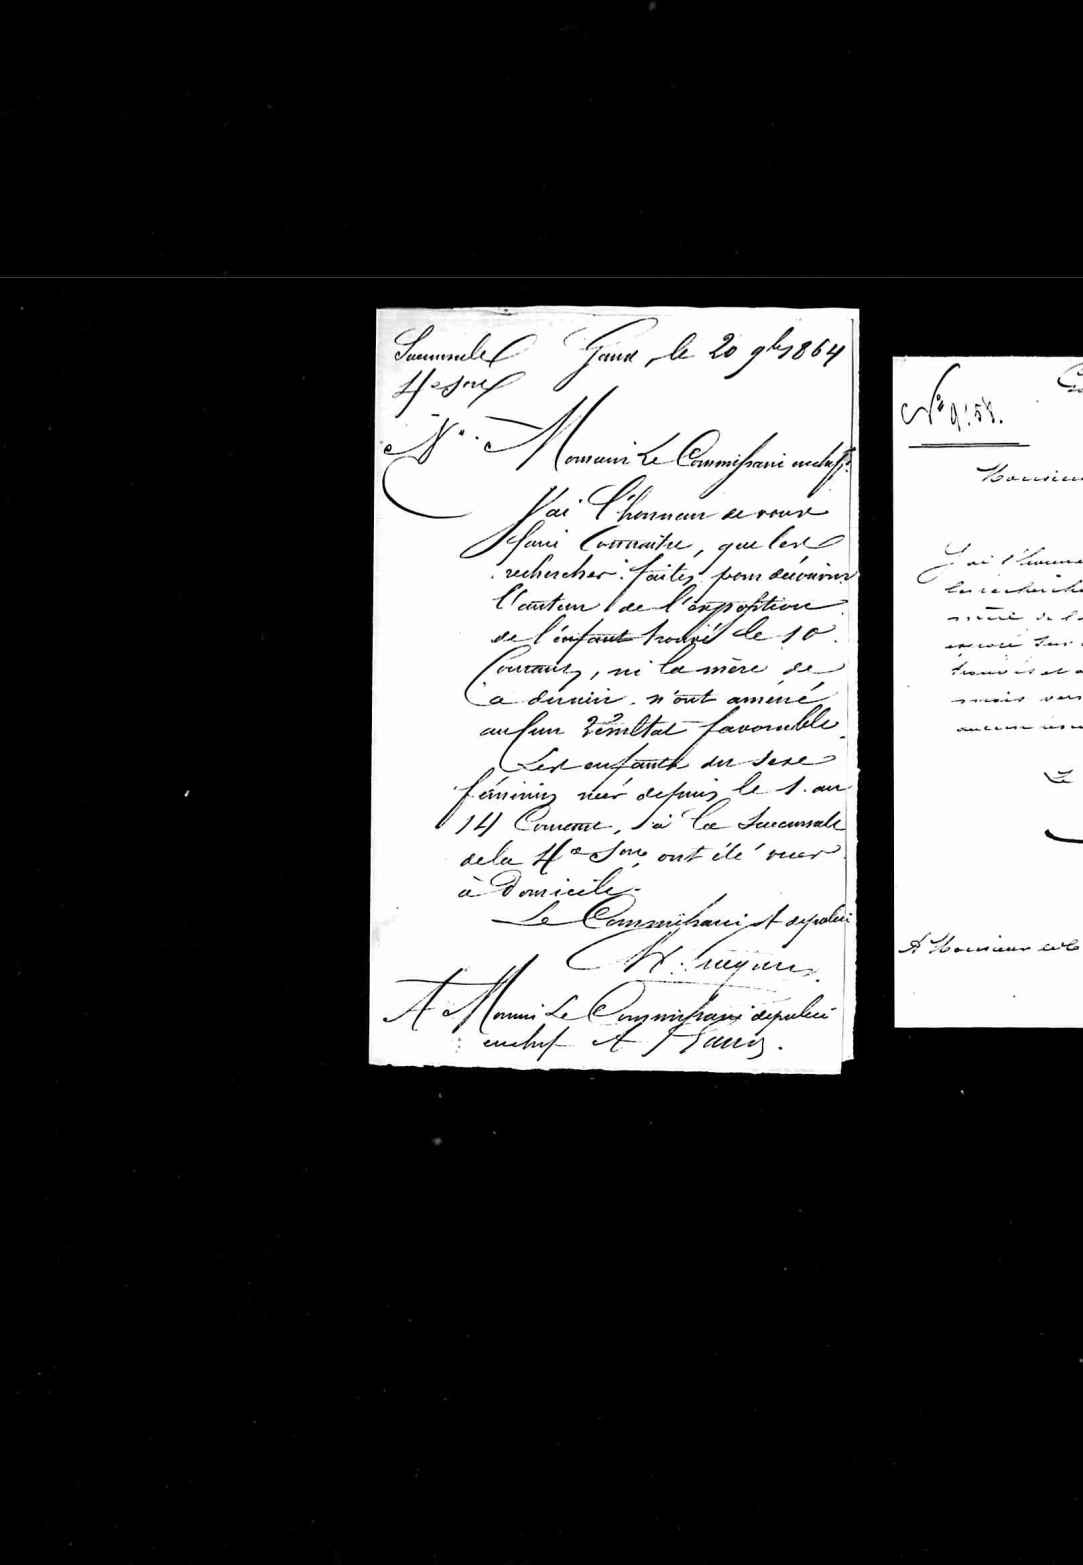 Succursale Gand, le 20 9bre 1864
4e Son
N°.
Monsieur Le Commissaire en chef
J'ai l'honneur de vous
faire Connaitre, que les
recherches faites pour découvrir
l'auteur de l'exposition
de l'enfant trouvé le 10
Courant, ni la mère de
ce dernier n'ont amené
aucun résultat favorable.
Les enfants du sexe
féminin nées depuis le 1. au
14 Courant, à la Succursale
de la 4e Son ont été vues
à Domicile.
Le Commissaire At de police
A Monsieur Le Commissaire de police
en chef A Gand.
N° 9158.
Monsieur
J'ai l'honne
les recherche
mère de l
encore
trouvés et
mois vers
aucun résu
Le
A Monsieur le C